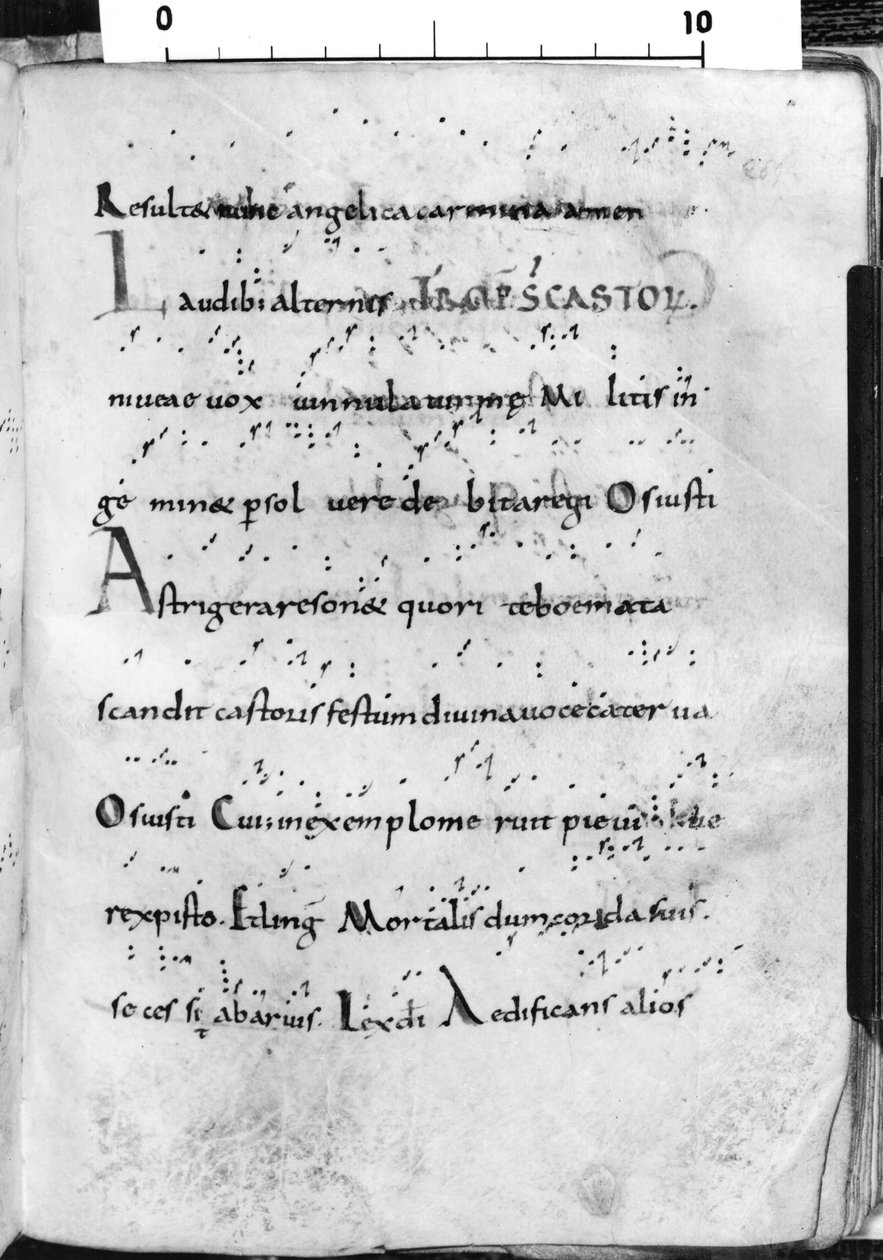 0 10
Result& angelica carmina amen
Laudib; alternis TROPS S CASTOR.
niveae vox Mi litis in
ge min& psol vere de bita regi Os iusti
Astrigera reson& quori te boemata
scandit castoris festum divina voce cater va
Os iusti Cui; in exemplo me ruit pie
rex pisto. Et ling Mortalis dum corda suis.
se ces sit ab arvis. Lex di Aedificans alios